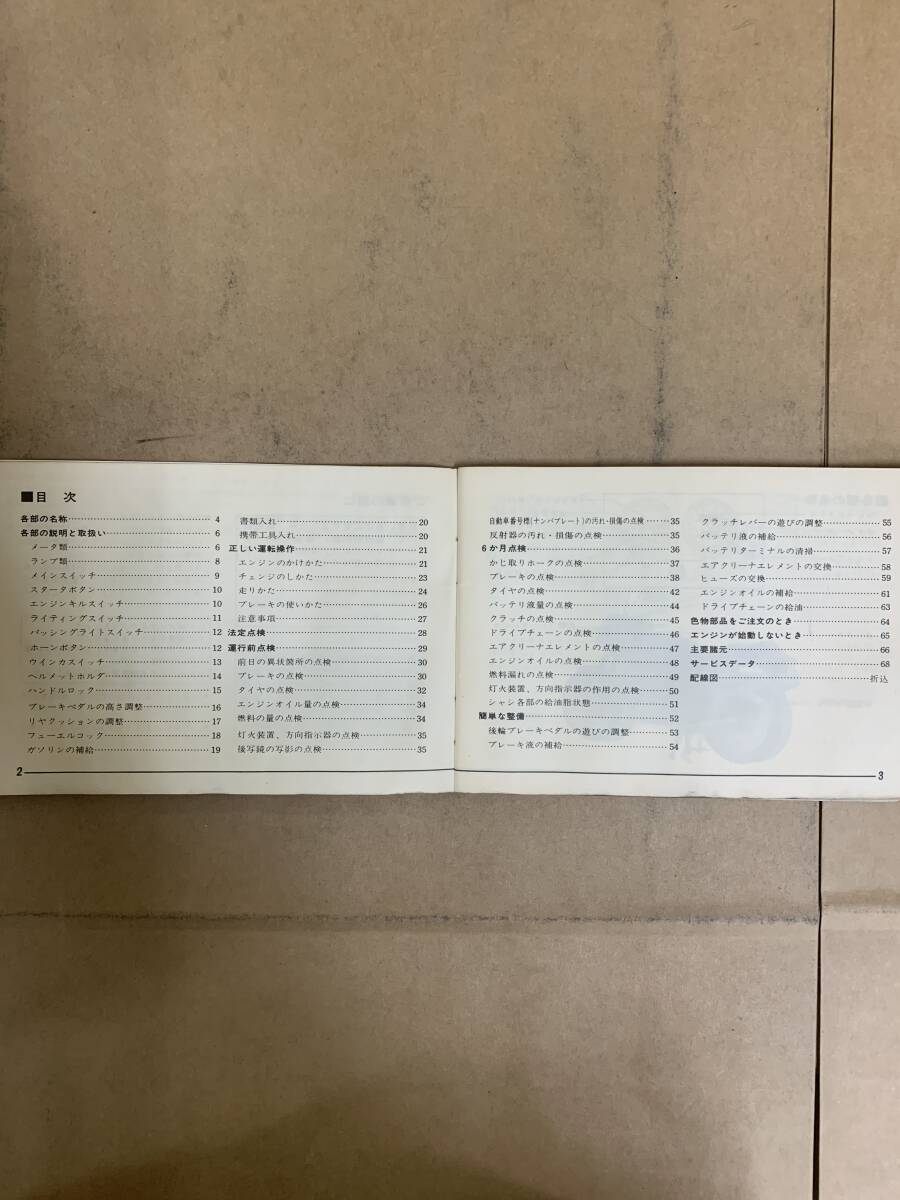 ■目 次
各部の名称 4
各部の説明と取扱い 6
メータ類 6
ランプ類 8
メインスイッチ 9
スタータボタン 10
エンジンキルスイッチ 10
ライティングスイッチ 11
パッシングライトスイッチ 12
ホーンボタン 12
ウインカスイッチ 13
ヘルメットホルダ 14
ハンドルロック 15
ブレーキペダルの高さ調整 16
リヤクッションの調整 17
フューエルコック 18
ガソリンの補給 19
書類入れ 20
携帯工具入れ 20
正しい運転操作 21
エンジンのかけかた 21
チェンジのしかた 23
走りかた 24
ブレーキの使いかた 26
注意事項 27
法定点検 28
運行前点検 29
前日の異状箇所の点検 30
ブレーキの点検 30
タイヤの点検 32
エンジンオイル量の点検 34
燃料の量の点検 34
灯火装置、方向指示器の点検 35
後写鏡の写影の点検 35
2
自動車番号標(ナンバプレート)の汚れ・損傷の点検 35
反射器の汚れ・損傷の点検 35
6か月点検 36
かじ取りホークの点検 37
ブレーキの点検 38
タイヤの点検 42
バッテリ液量の点検 44
クラッチの点検 45
ドライブチェーンの点検 46
エアクリーナエレメントの点検 47
エンジンオイルの点検 48
燃料漏れの点検 49
灯火装置、方向指示器の作用の点検 50
シャシ各部の給油脂状態 51
簡単な整備 52
後輪ブレーキペダルの遊びの調整 53
ブレーキ液の補給 54
クラッチレバーの遊びの調整 55
バッテリ液の補給 56
バッテリターミナルの清掃 57
エアクリーナエレメントの交換 58
ヒューズの交換 59
エンジンオイルの補給 61
ドライブチェーンの給油 63
色物部品をご注文のとき 64
エンジンが始動しないとき 65
主要諸元 66
サービスデータ 68
配線図 折込
3